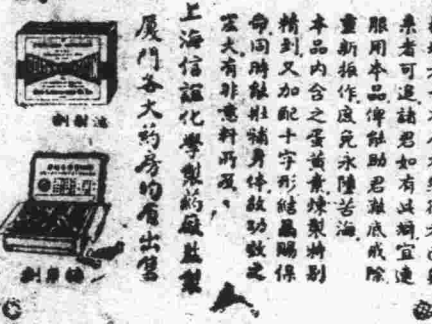 來者可追諸君如有此癖宜速
服用本品俾能助君徹底戒除
重新振作度免永墮苦海
本品內含之蛋黃素煉製特別
精到又加配十字形結晶賜保
命同時能壯補身体效功效之
宏大有非意料所及
上海信誼化學製藥廠監製
廈門各大药房均有出售
劑射注